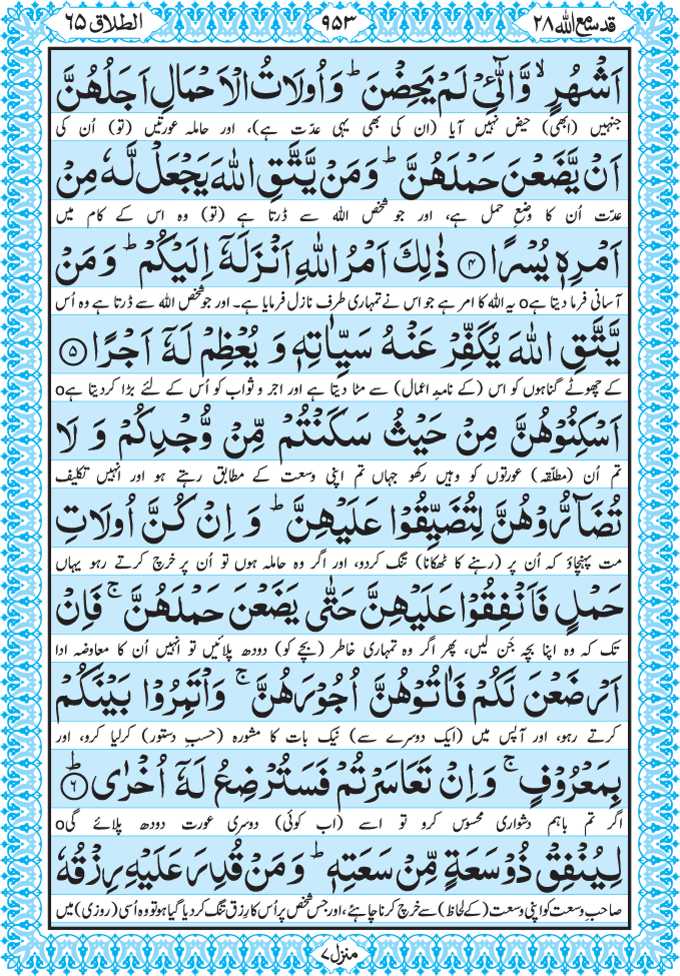 قد سمع الله ٢٨ ٩٥٣ الطلاق ٦٥
اَشْهُرٍ ۙ وَّالّٰٓـِٔيْ لَمْ يَحِضْنَ ؕ وَاُولَاتُ الْاَحْمَالِ اَجَلُهُنَّ
جنہیں (ابھی) حیض نہیں آیا (ان کی بھی یہی عدّت ہے)، اور حاملہ عورتیں (تو) اُن کی
اَنْ يَّضَعْنَ حَمْلَهُنَّ ؕ وَمَنْ يَّتَّقِ اللّٰهَ يَجْعَلْ لَّهٗ مِنْ
عدّت اُن کا وضعِ حمل ہے، اور جو شخص اللہ سے ڈرتا ہے (تو) وہ اس کے کام میں
اَمْرِهٖ يُسْرًا ۴ ذٰلِكَ اَمْرُ اللّٰهِ اَنْزَلَهٗۤ اِلَيْكُمْ ؕ وَمَنْ
آسانی فرما دیتا ہےo یہ اللہ کا امر ہے جو اس نے تمہاری طرف نازل فرمایا ہے۔ اور جو شخص اللہ سے ڈرتا ہے وہ اُس
يَّتَّقِ اللّٰهَ يُكَفِّرْ عَنْهُ سَيِّاٰتِهٖ وَ يُعْظِمْ لَهٗۤ اَجْرًا ۵
کے چھوٹے گناہوں کو اس (کے نامہِ اعمال) سے مٹا دیتا ہے اور اجر و ثواب کو اُس کے لئے بڑا کر دیتا ہےo
اَسْكِنُوْهُنَّ مِنْ حَيْثُ سَكَنْتُمْ مِّنْ وُّجْدِكُمْ وَ لَا
تم اُن (مطلّقہ) عورتوں کو وہیں رکھو جہاں تم اپنی وسعت کے مطابق رہتے ہو اور انہیں تکلیف
تُضَآرُّوْهُنَّ لِتُضَيِّقُوْا عَلَيْهِنَّ ؕ وَ اِنْ كُنَّ اُولَاتِ
مت پہنچاؤ کہ اُن پر (رہنے کا ٹھکانا) تنگ کر دو، اور اگر وہ حاملہ ہوں تو اُن پر خرچ کرتے رہو یہاں
حَمْلٍ فَاَنْفِقُوْا عَلَيْهِنَّ حَتّٰى يَضَعْنَ حَمْلَهُنَّ ۚ فَاِنْ
تک کہ وہ اپنا بچہ جَن لیں، پھر اگر وہ تمہاری خاطر (بچے کو) دودھ پلائیں تو انہیں اُن کا معاوضہ ادا
اَرْضَعْنَ لَكُمْ فَاٰتُوْهُنَّ اُجُوْرَهُنَّ ۚ وَاْتَمِرُوْا بَيْنَكُمْ
کرتے رہو، اور آپس میں (ایک دوسرے سے) نیک بات کا مشورہ (حسبِ دستور) کر لیا کرو، اور
بِمَعْرُوْفٍ ۚ وَاِنْ تَعَاسَرْتُمْ فَسَتُرْضِعُ لَهٗۤ اُخْرٰى ؕ ۶
اگر تم باہم دشواری محسوس کرو تو اسے (اب کوئی) دوسری عورت دودھ پلائے گیo
لِيُنْفِقْ ذُوْ سَعَةٍ مِّنْ سَعَتِهٖ ؕ وَمَنْ قُدِرَ عَلَيْهِ رِزْقُهٗ
صاحبِ وسعت کو اپنی وسعت (کے لحاظ) سے خرچ کرنا چاہئے، اور جس شخص پر اُس کا رِزق تنگ کر دیا گیا ہو تو وہ اُسی (روزی) میں
منزل ۷